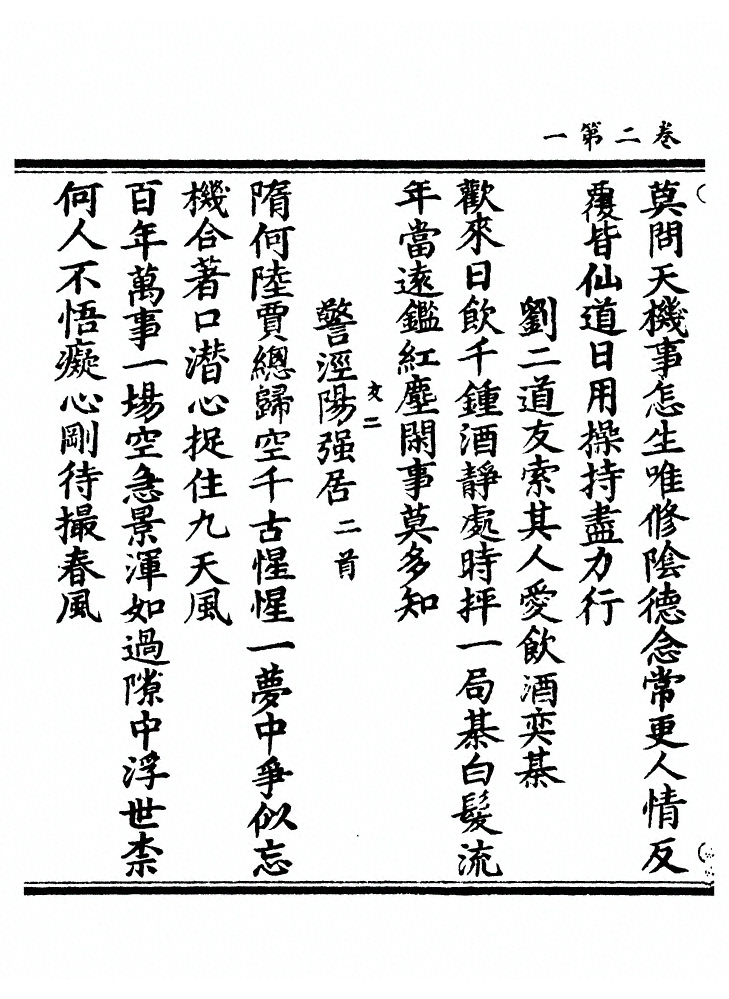 卷二第一
莫問天機事怎生唯修陰德念常更人情反
覆皆仙道日用操持盡力行
劉二道友索其人愛飲酒奕棊
歡來日飲千鍾酒靜處時抨一局棊白髮流
年當遠鑑紅塵閑事莫多知
警涇陽强居二首
友二
隋何陸賈總歸空千古惺惺一夢中爭似忘
機合著口潛心捉住九天風
百年萬事一場空急景渾如過隙中浮世柰
何人不悟癡心剛待撮春風